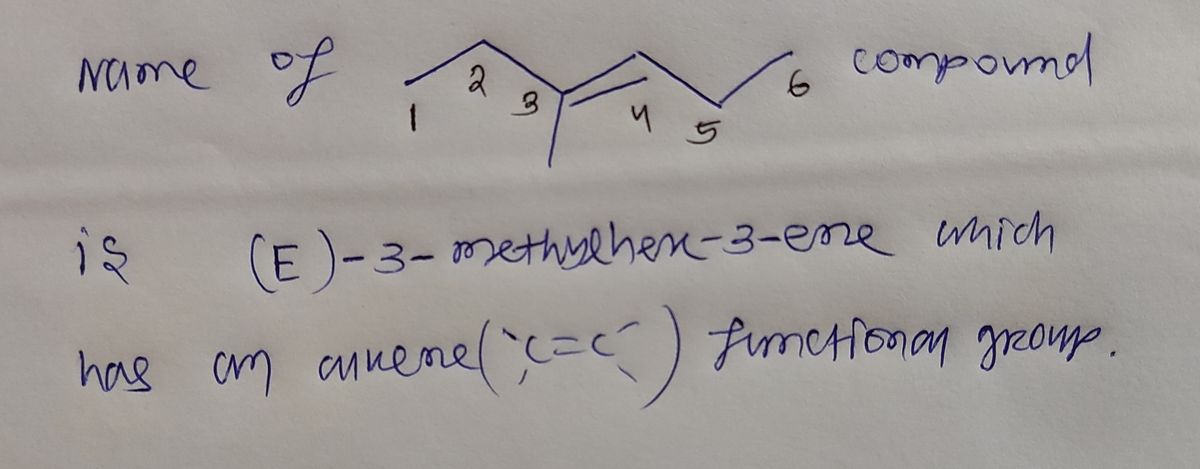 Name of 1 2 3 4 5 6 compound
is (E)-3-methylhex-3-ene which
has an alkene (C=C) functional group.